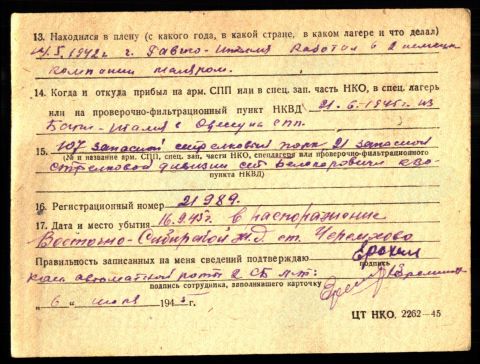 13. Находился в плену (с какого года, в какой стране, в каком лагере и что делал)
14.5.1942 г. г. Италия Работал в немецк
компании маляром.
14. Когда и откуда прибыл на арм. СПП или в спец. зап. часть НКО, в спец. лагерь
или на проверочно-фильтрационный пункт НКВД 21.6-1945г из
Италия г Одессу на СПП.
15. 107 запасной стрелковый полк 21 запасной
(№ и название арм. СПП, спец. зап. части НКО, спецлагеря или проверочно-фильтрационного
стрелковой дивизии
пункта НКВД)
16. Регистрационный номер 21989.
17. Дата и место убытия 16.9.45г. в распоряжение
Восточно-Сибирской Ж.Д. ст. Черемхово
Правильность записанных на меня сведений подтверждаю Ерохин
подпись
Ком автоматной роты 2 СБ
подпись сотрудника, заполнявшего карточку
„6“ июля 1945 г.
ЦТ НКО. 2262—45